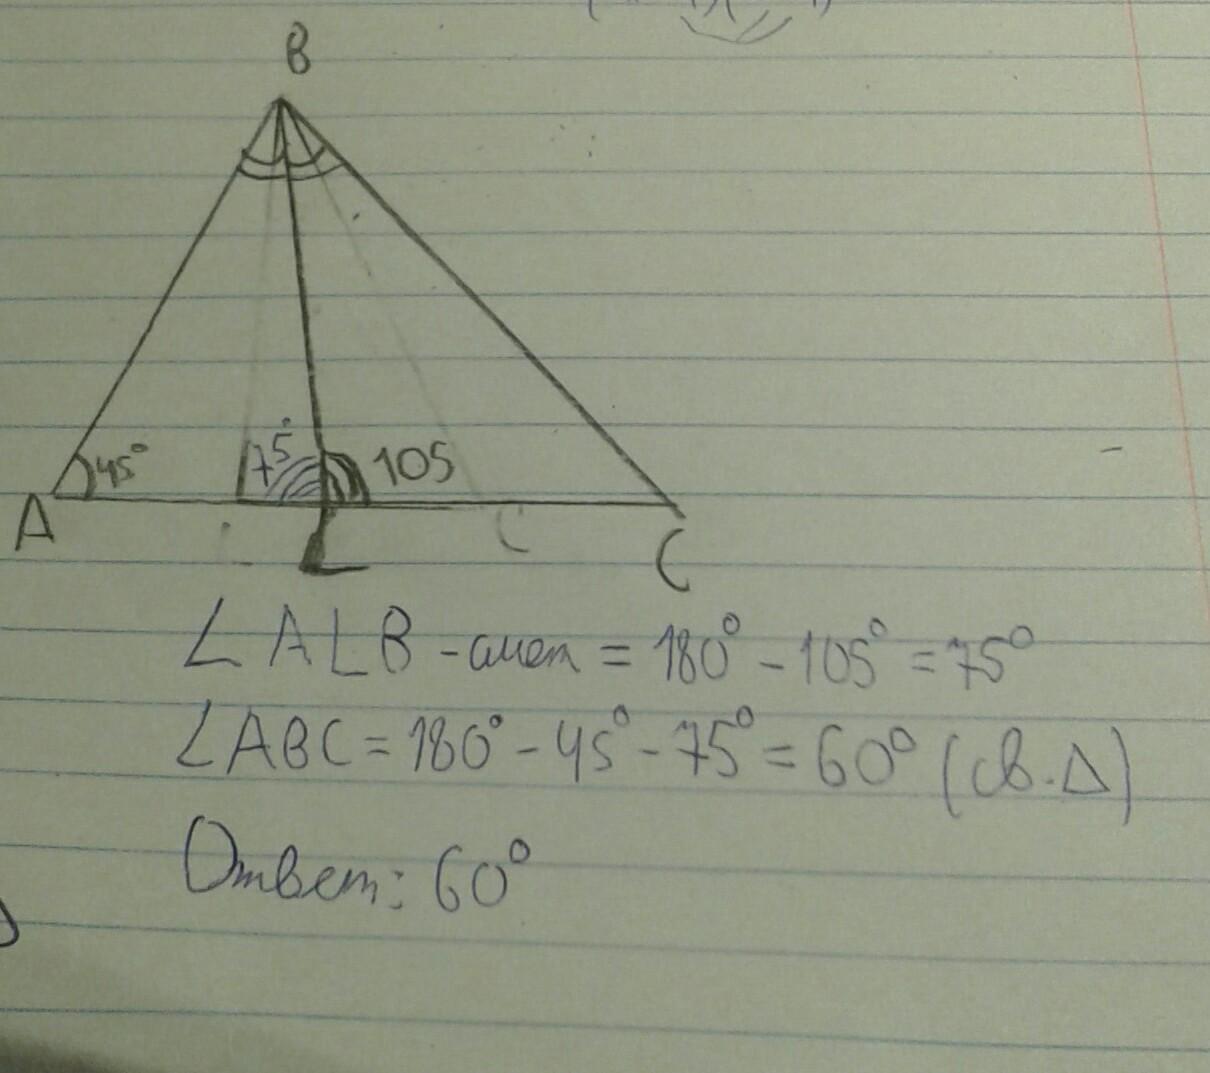 B
45°
75°
105
A
L
C
C
∠ALB - смеж = 180° - 105° = 75°
∠ABC = 180° - 45° - 75° = 60° (св. Δ)
Ответ: 60°